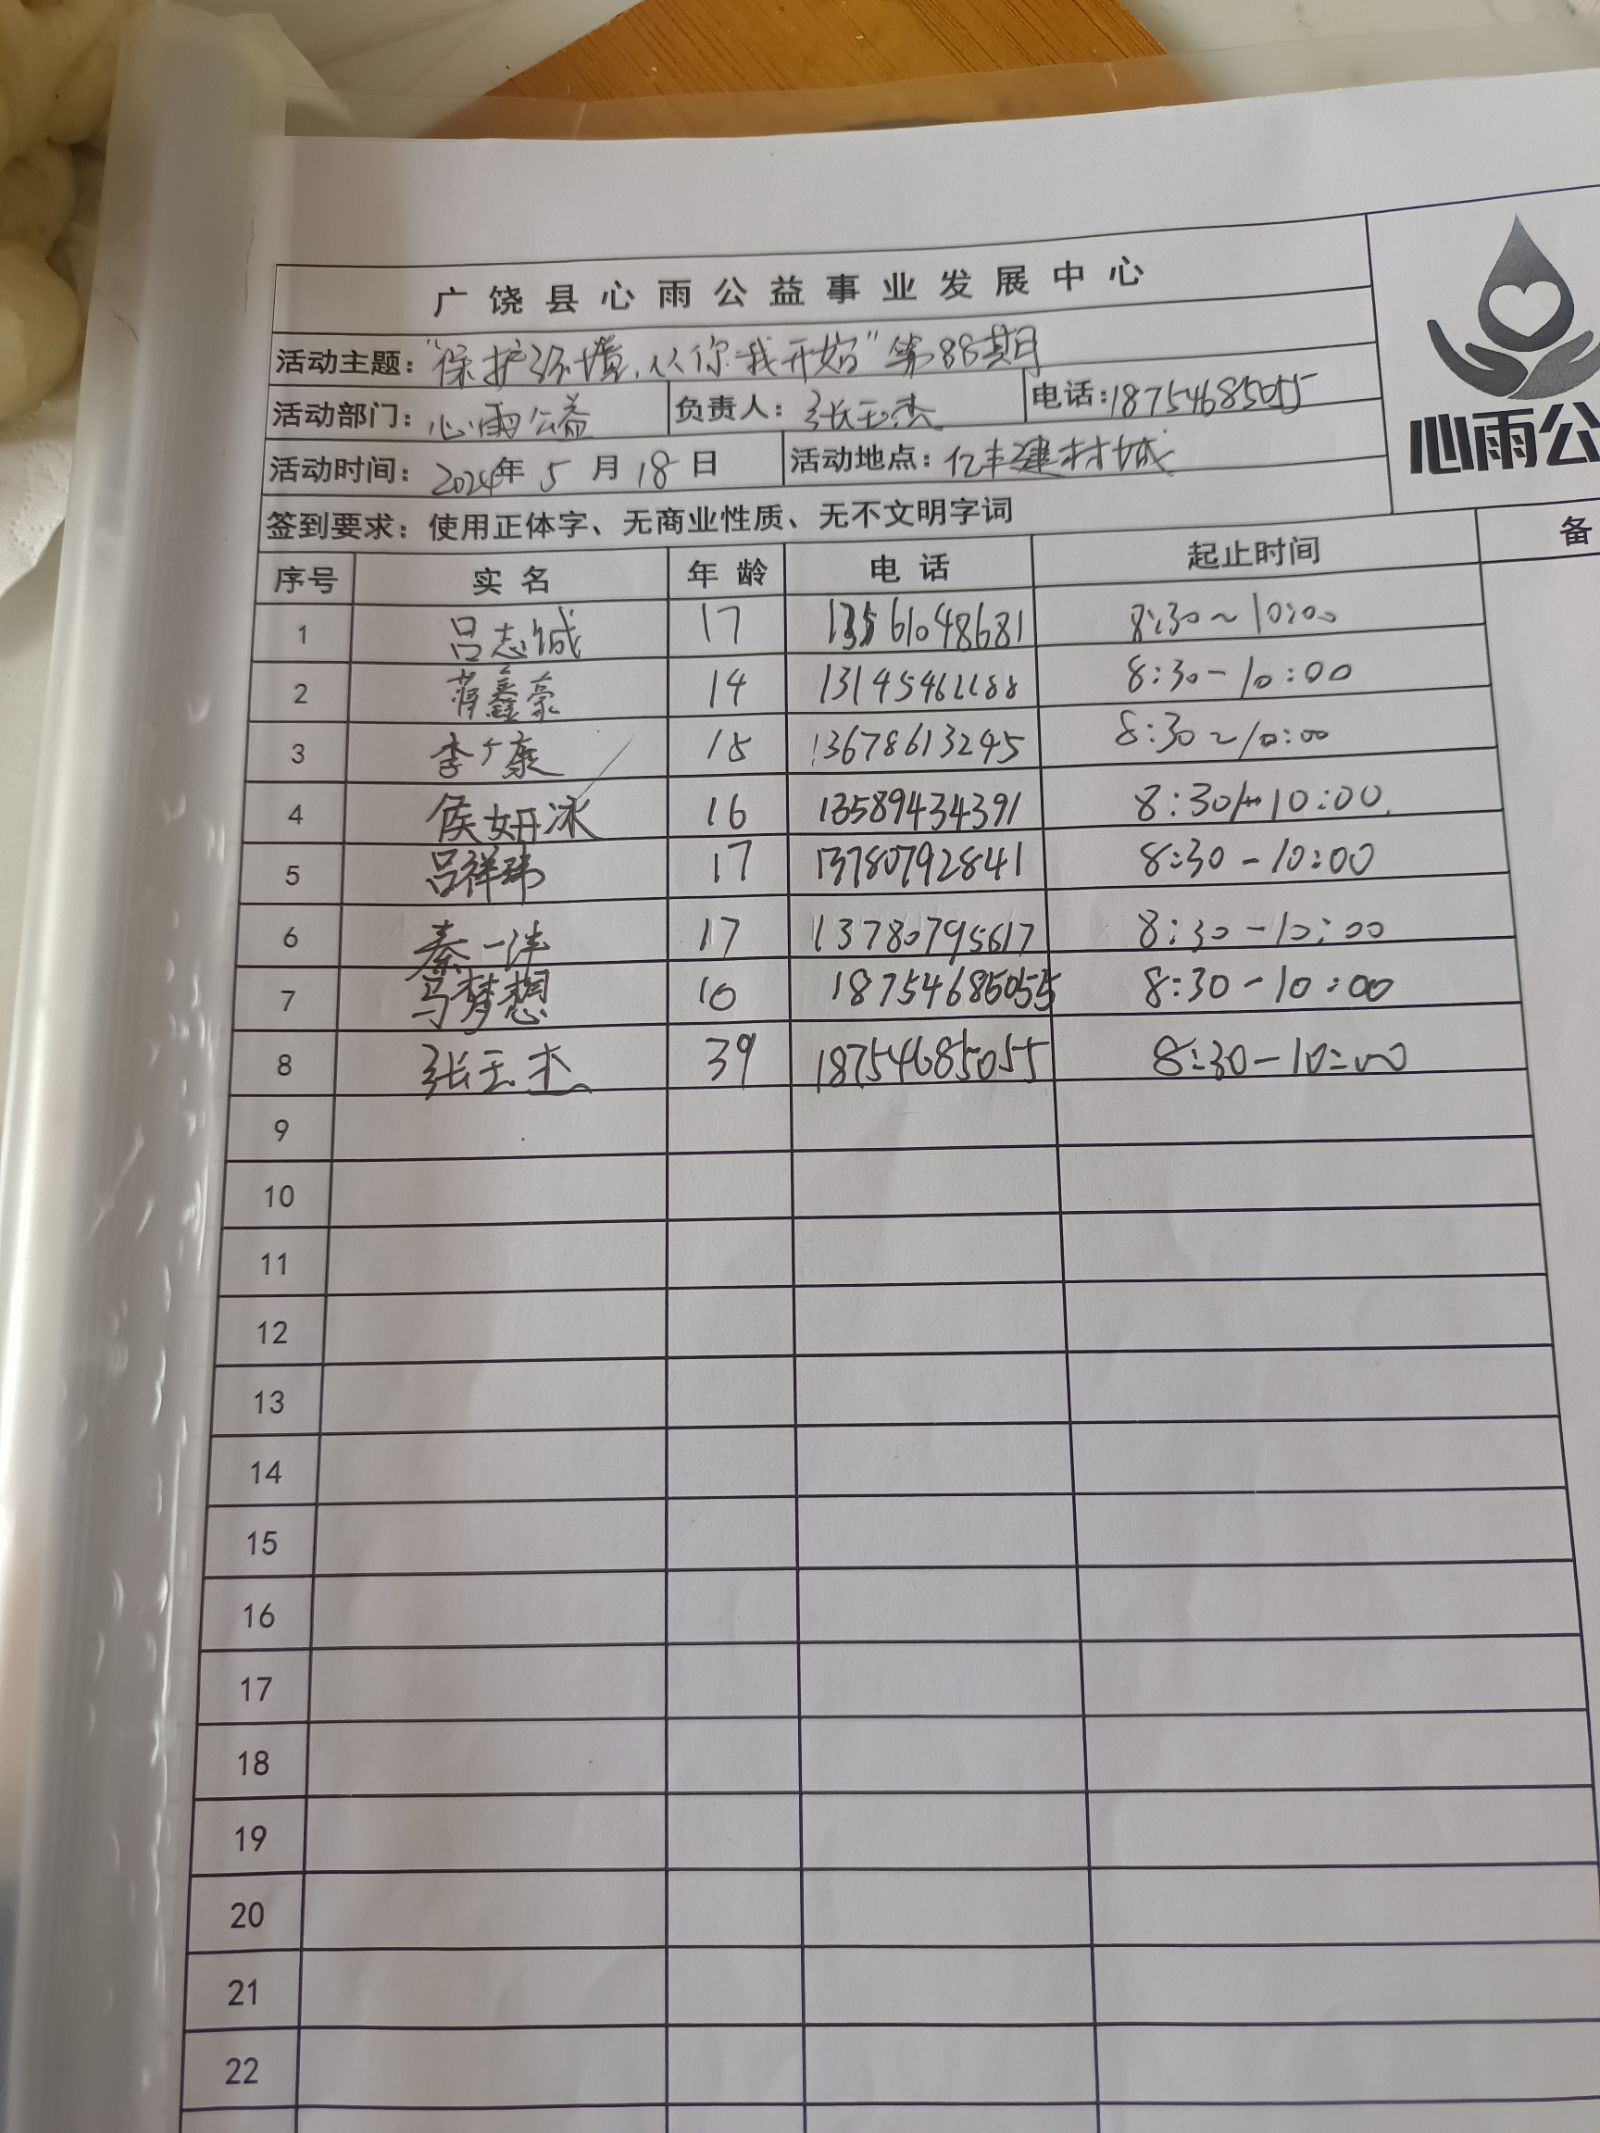 广饶县心雨公益事业发展中心
活动主题：“保护环境，从你我开始”第88期
活动部门：心雨公益 负责人：张玉杰 电话：18754685055
活动时间：2024年5月18日 活动地点：亿丰建材城
心雨公
签到要求：使用正体字、无商业性质、无不文明字词
序号 实名 年龄 电话 起止时间 备
1 吕志诚 17 13561048681 8:30~10:00
2 蒋鑫豪 14 13145461188 8:30-10:00
3 李广康 15 13678613245 8:30~10:00
4 侯妍冰 16 13589434391 8:30-10:00
5 吕祥玮 17 13780792841 8:30-10:00
6 秦一沣 17 13780795617 8:30-10:00
7 马梦想 10 18754685055 8:30-10:00
8 张玉杰 39 18754685055 8:30-10:00
9
10
11
12
13
14
15
16
17
18
19
20
21
22